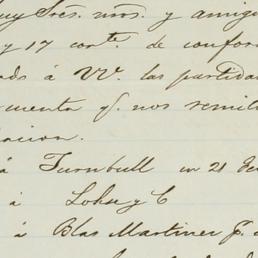 Sres. nros. y amigo
y 17 corte. de confor
á VV. las partida
menta q. nos remit
acion.
á Turnbull en 21
á Lohse y C
á Blas Martinez